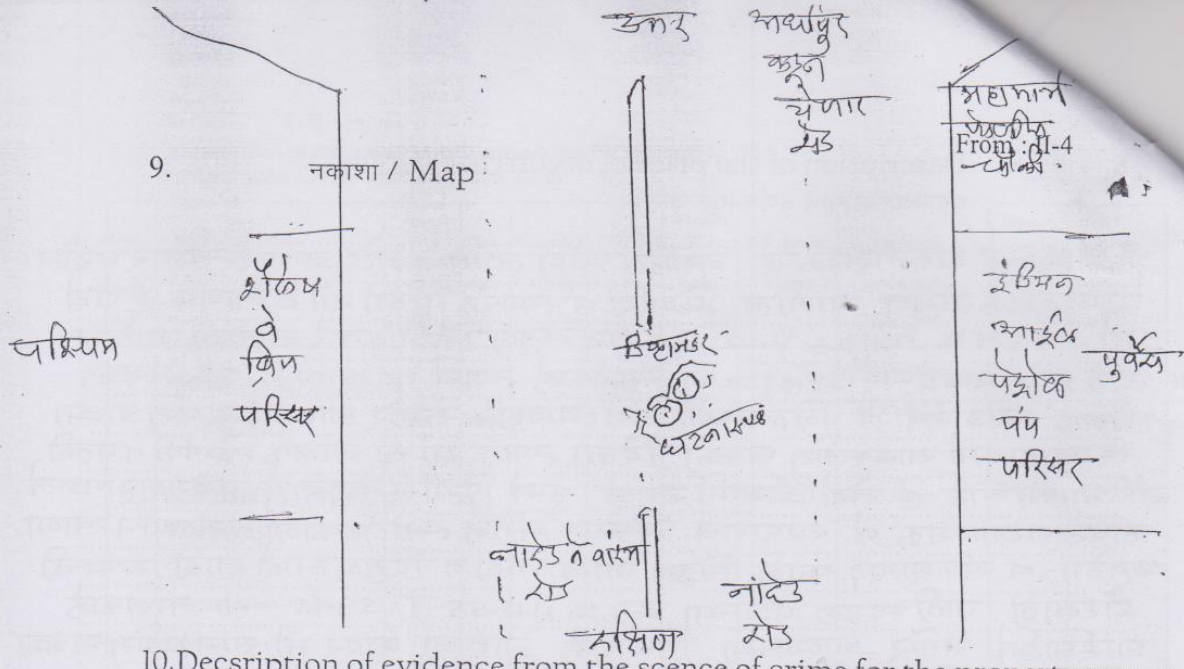 उत्तर
अर्धापुर
कडून
येणार
रोड
महामार्ग
पोलीस
From : II-4
चौकी
9. नकाशा / Map
व
परिसर
पश्चिम
डिव्हायडर
घटनास्थळ
इंडियन
आईल
पेट्रोल
पंप
परिसर
पुर्वेस
रोड
नांदेड
रोड
दक्षिण
10.Decsription of evidence from the scence of crime for the